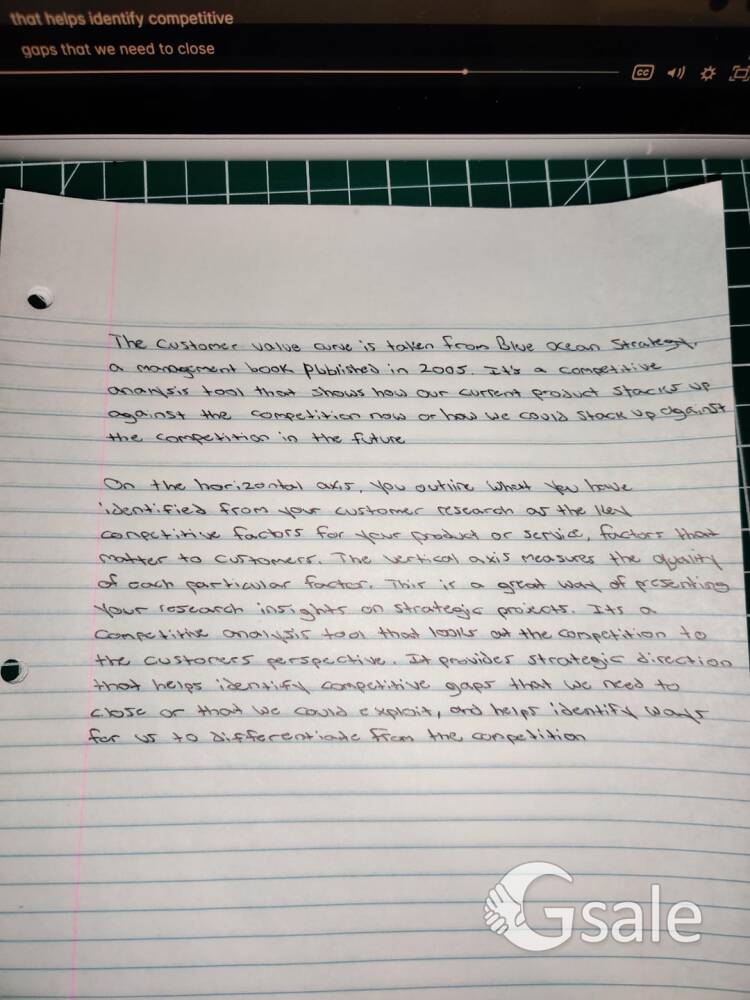 that helps identify competitive
gaps that we need to close
CC
The customer value curve is taken from Blue Ocean Strategy,
a managment book published in 2005. It's a competitive
analysis tool that shows how our current product stacks up
against the competition now or how we could stack up against
the competition in the future
On the horizontal axis, you outline what you have
identified from your customer research as the key
competitive factors for your product or service, factors that
matter to customers. The vertical axis measures the quality
of each particular factor. This is a great way of presenting
your research insights on strategic projects. Its a
competitive analysis tool that looks at the competition to
the customers perspective. It provides strategic direction
that helps identify competitive gaps that we need to
close or that we could exploit, and helps identify ways
for us to differentiate from the competition
Gsale